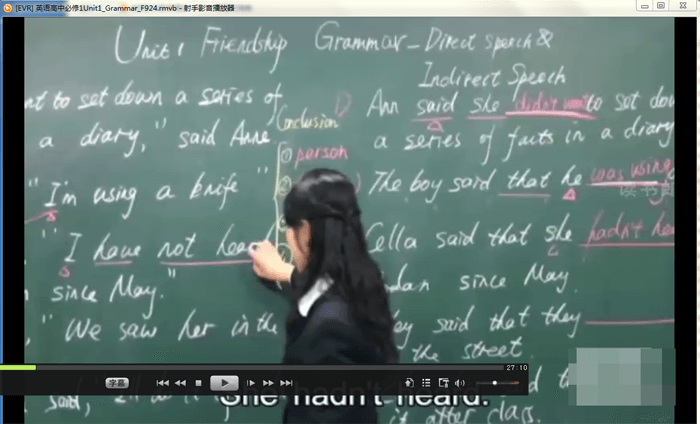 [EVR] 英语高中必修1Unit1_Grammar_F924.rmvb - 射手影音播放器
Unit 1 Friendship Grammar - Direct Speech &
Indirect Speech
nt to set down a series of
a diary," said Anne
"I'm using a knife"
"I have not hea
since May."
"We saw her in the
said,
Conclusion
① person
②
Ann said she didn't want to set dow
a series of facts in a diary
The boy said that he was using
读书郎
ella said that she hadn't hea
since May.
said that they
the street.
it after class.
She hadn't heard.
27:10
字幕